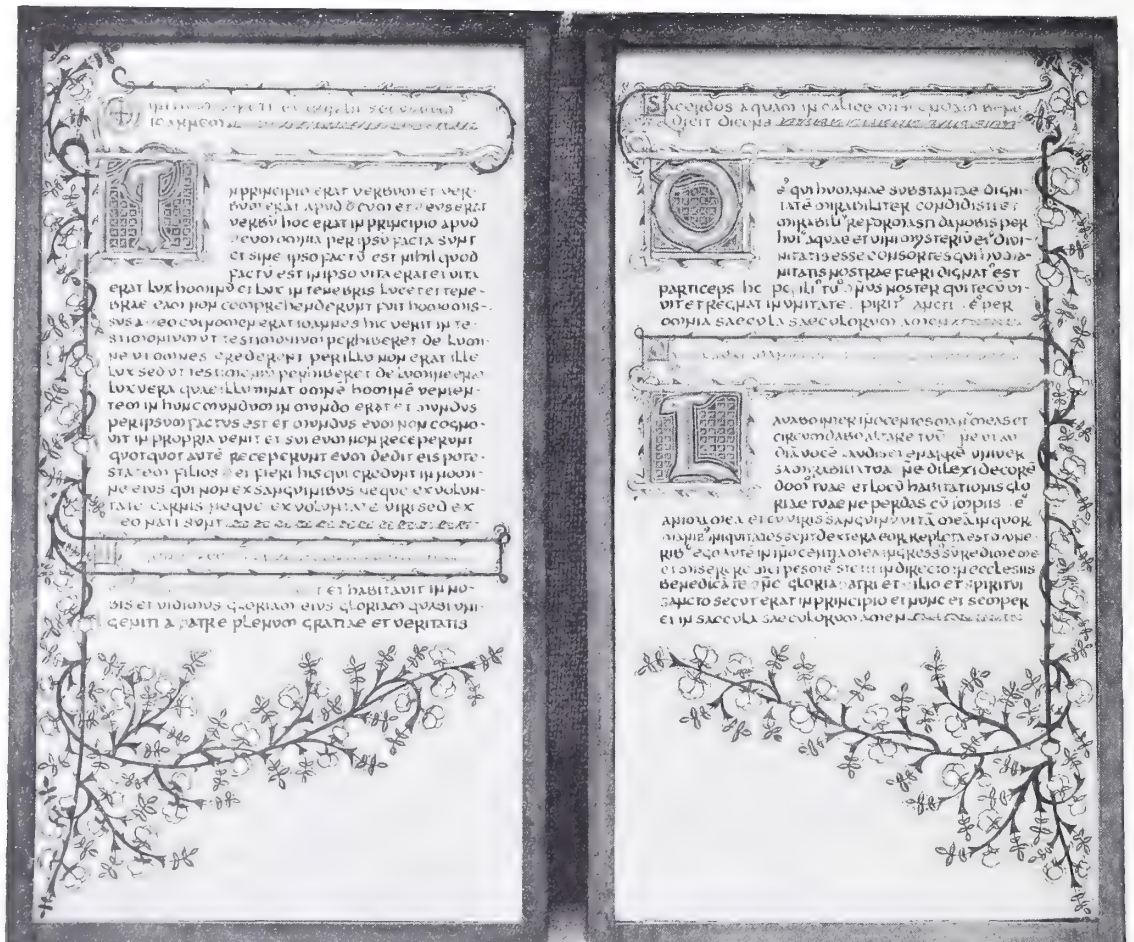 INITIUM SANCTI EVANGELII SECUNDUM
IOANNEM
IN PRINCIPIO ERAT VERBUM ET VER-
BUM ERAT APUD DEUM ET DEUS ERAT
VERBŪ HOC ERAT IN PRINCIPIO APUD
DEUM OMNIA PER IPSŪ FACTA SUNT
ET SINE IPSO FACTŪ EST NIHIL QUOD
FACTŪ EST IN IPSO VITA ERAT ET VITA
ERAT LUX HOMINŪ ET LUX IN TENEBRIS LUCET ET TENE-
BRAE EAM NON COMPREHENDERUNT FUIT HOMO MIS-
SUS A DEO CUI NOMEN ERAT IOANNES HIC VENIT IN TE-
STIMONIUM UT TESTIMONIUM PERHIBERET DE LUMI-
NE UT OMNES CREDERENT PER ILLŪ NON ERAT ILLE
LUX SED UT TESTIMONIŪ PERHIBERET DE LUMINE ERAT
LUX VERA QUAE ILLUMINAT OMNĒ HOMINĒ VENIEN-
TEM IN HUNC MUNDUM IN MUNDO ERAT ET MUNDUS
PER IPSUM FACTUS EST ET MUNDUS EUM NON COGNO-
VIT IN PROPRIA VENIT ET SUI EUM NON RECEPERUNT
QUOTQUOT AUTĒ RECEPERUNT EUM DEDIT EIS POTE-
STATEM FILIOS DEI FIERI HIS QUI CREDUNT IN NOMI-
NE EIUS QUI NON EX SANGUINIBUS NEQUE EX VOLUN-
TATE CARNIS NEQUE EX VOLUNTATE VIRI SED EX
DEO NATI SUNT
ET HABITAVIT IN NO-
BIS ET VIDIMUS GLORIAM EIUS GLORIAM QUASI UNI-
GENITI A PATRE PLENUM GRATIAE ET VERITATIS
SACERDOS AQUAM IN CALICE MISCENDAM BENE
DICIT DICENS
DEꝰ QUI HUMANAE SUBSTANTIAE DIGNI-
TATĒ MIRABILITER CONDIDISTI ET
MIRABILIꝰ REFORMASTI DA NOBIS PER
HUIꝰ AQUAE ET VINI MYSTERIŪ EIꝰ DIVI-
NITATIS ESSE CONSORTES QUI HUMA-
NITATIS NOSTRAE FIERI DIGNATꝰ EST
PARTICEPS TUꝰ DÑUS NOSTER QUI TECŪ VI-
VIT ET REGNAT IN UNITATE SPIRITꝰ SANCTI DEꝰ PER
OMNIA SAECULA SAECULORUM AMEN
LAVABO INTER INOCENTES MANꝰ MEAS ET
CIRCUMDABO ALTARE TUŪ DÑE UT AU
DIĀ VOCĒ LAUDIS ET ENARRĒ UNIVER
SA MIRABILIA TUA DÑE DILEXI DECORĒ
DOMꝰ TUAE ET LOCŪ HABITATIONIS GLO
RIAE TUAE NE PERDAS CŪ IMPIIS DEꝰ
ANIMĀ MEA ET CŪ VIRIS SANGUINŪ VITĀ MEA IN QUOR
MANIBꝰ INIQUITATES SUNT DEXTERA EOR REPLETA EST MUNE
RIBꝰ EGO AUTĒ IN INOCENTIA MEA INGRESSꝰ SŪ REDIME ME
ET MISERERE MEI PES MEꝰ STETIT IN DIRECTO IN ECCLESIIS
BENEDICĀ TE DÑE GLORIA PATRI ET FILIO ET SPIRITUI
SANCTO SECUT ERAT IN PRINCIPIO ET NUNC ET SEMPER
ET IN SAECULA SAECULORUM AMEN